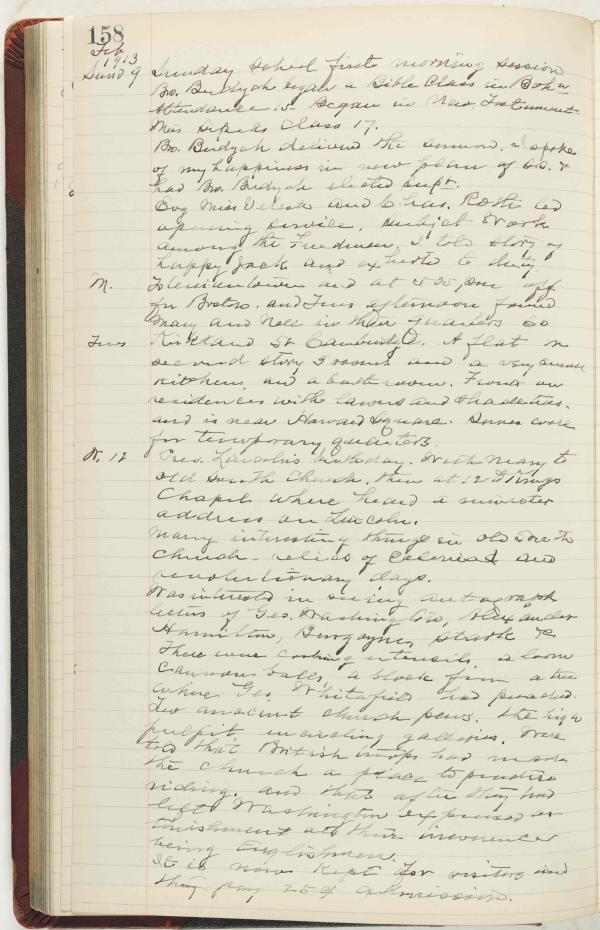 158
Feb
1913
Sund 9 Sunday School first morning session
Bro. Burdych began a Bible Class in Boh'n
attendance 15. Began in New Testament.
Miss Class 17.
Bro. Burdych delivered the sermon. I spoke
of my happiness in new plan of S.S. &
had Bro. Burdych elected supt.
Evg Miss and Chas. Roth led
opening service. Subject Work
among the Freedmen. I told story of
happy Jack and exhorted to duty.
M. and at 5 25 pm off
for Boston. and Tues afternoon found
Mary and Nell in their quarters 60
Tues Kirkland St Cambridge. A flat on
second story 5 rooms and a very small
kitchen, and a bath room. Fronts on
residences with lawns and shade trees.
and is near Harvard Square. Does well
for temporary quarters.
W. 12 Pres. Lincoln's birthday. With Mary to
Old South Church, then at 12 to Kings
Chapel where heard a minister
address on Lincoln.
Many interesting things in Old South
Church - relics of Colonial and
revolutionary days.
Was interested in seeing autograph
letters of Geo. Washington, Alexander
Hamilton, Burgoyne, Stark &c
There were cooking utensils, a loom
Cannon balls, a block from a tree
where Geo Whitefield had preached.
Few ancient church pews. The high
pulpit, encircling galleries. Were
told that British troops had made
the church a place to practice
riding. and that after they had
left Washington expressed as
tonishment at their irreverence
being Englishmen.
It is now kept for visitors and
they pay 25¢ admission.